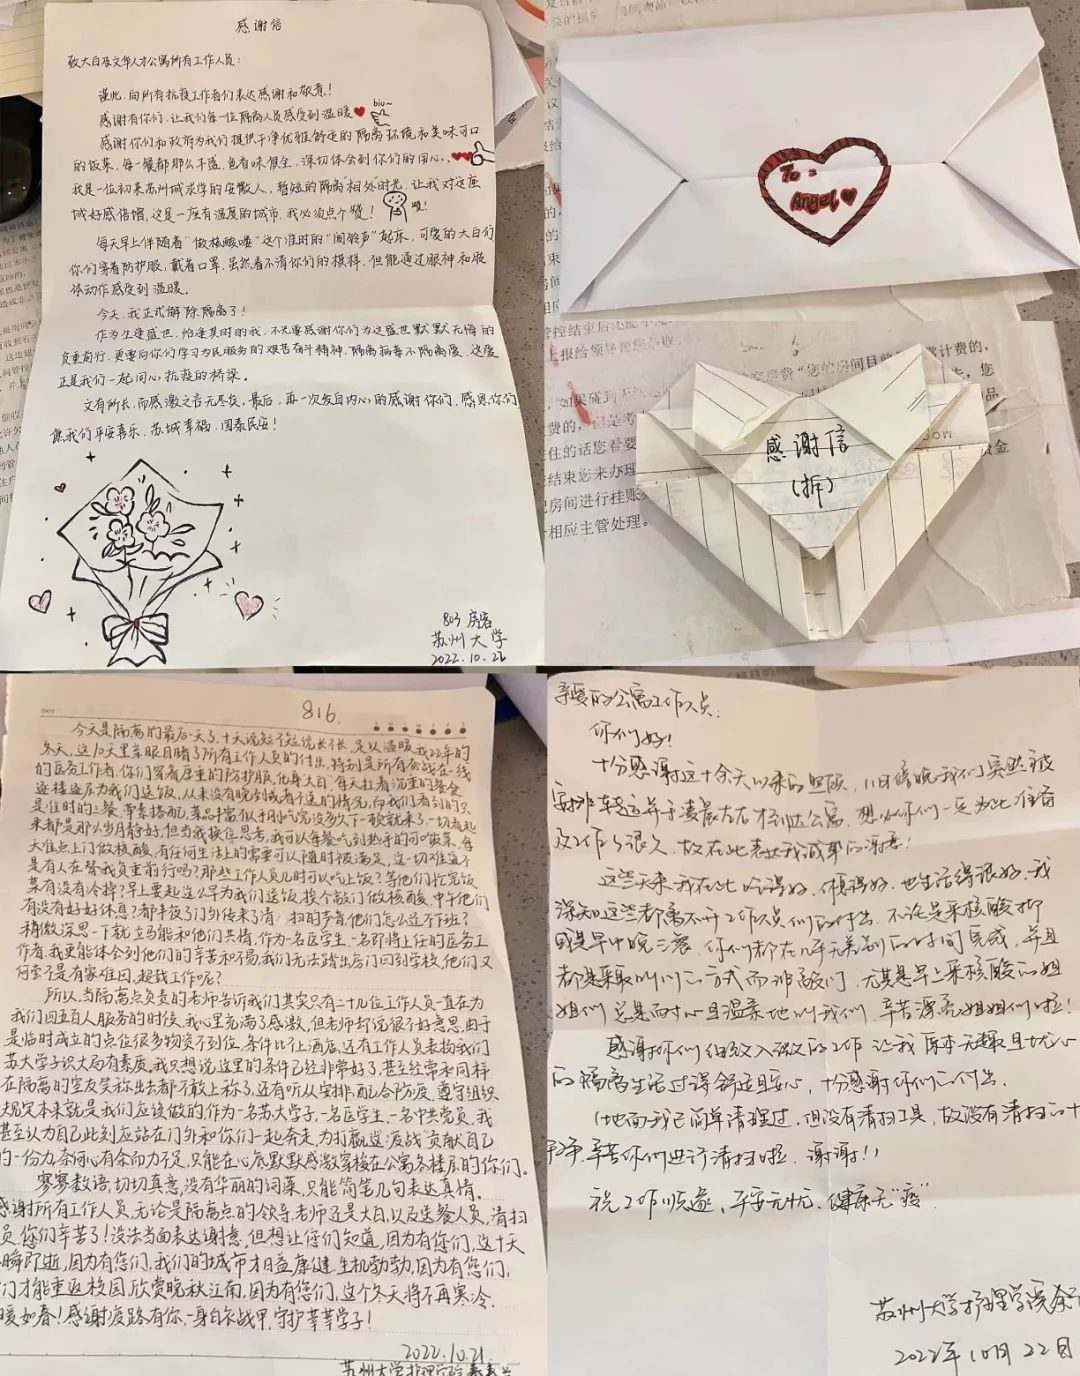 感谢信
致大白及文华人才公寓所有工作人员：
谨此，向所有抗疫工作者们表达感谢和敬意！
感谢有你们，让我们每一位隔离人员感受到温暖
biu~
感谢你们和政府为我们提供干净优雅舒适的隔离环境和美味可口
的饭菜，每一餐都那么丰盛，色香味俱全，深切体会到你们的用心，
我是一位初来苏州城求学的安徽人，暂短的隔离"相处"时光，让我对这座
城好感倍增，这是一座有温度的城市，我必须点个赞！
赞！
每天早上伴随着"做核酸喽"这个准时的"闹铃声"起床，可爱的大白们
你们穿着防护服，戴着口罩，虽然看不清你们的模样，但能通过眼神和肢
体动作感受到温暖。
今天，我正式解除隔离了！
作为生逢盛世，恰逢其时的我，不光要感谢你们为这盛世默默无悔的
负重前行，更要向你们学习为民服务的艰苦奋斗精神，隔离病毒不隔离爱，这爱
正是我们一起同心抗疫的桥梁。
文有所长，而感激之言无尽矣，最后，再一次发自内心的感谢你们，感恩你们
像我们平安喜乐，苏城幸福，国泰民安！
803 房客
苏州大学
2022.10.22
To：
Angel
感谢信
（拆）
费的，您
房间进行挂账
相应主管处理。
816.
今天是隔离的最后一天了，十天说短不短说长不长，足以温暖我22年的
冬天，这10天里亲眼目睹了所有工作人员的付出，特别是所有奋战在一线
的医务工作者，你们穿着厚重的防护服，化身"大白"，每天扛着沉重的餐食
逐楼逐层为我们送饭，从来没有晚到或者不送的情况，而我们看到的只
是准时的三餐，荤素搭配，菜品丰富，似乎刚吃完没多久下一顿就来了，一切看起
来都是那么岁月静好，但当我换位思考，我可以每餐吃到热乎的可口饭菜，每
天准点上门做核酸，有任何生活上的需要可以随时被满足，这一切难道不
是有人在替我负重前行吗？那些工作人员几时可以吃上饭？等他们忙完饭
菜有没有冷掉？早上要起这么早为我们送饭，挨个敲门做核酸，中午他们
有没有好好休息？都半夜了门外传来了清扫的声音，他们怎么还不下班？
稍微深思一下就立马能和他们共情，作为一名医学生，一名即将上任的医务工
作者，我更能体会到他们的辛苦和不易，我们无法踏出房门回到学校，他们又
何尝不是有家难回，超载工作呢？
所以，当隔离点负责的老师告诉我们其实只有二十几位工作人员一直在为
我们四五百人服务的时候，我心里充满了感激，但老师却说很不好意思，由于
是临时成立的点位很多物资不到位，条件比不上酒店，还有工作人员表扬我们
苏大学子识大局有素质，我只想说这里的条件已经非常好了，甚至经常和同样
在隔离的室友笑称出去都不敢上称了，还有听从安排，配合防疫，遵守组织
规定本来就是我们应该做的，作为一名苏大学子，一名医学生，一名中共党员，我
甚至认为自己此刻应站在门外和你们一起奔走，为打赢这"疫战"贡献自己
的一份力，奈何心有余而力不足，只能在心底默默感激穿梭在公寓各楼层的你们。
寥寥数语，切切真意，没有华丽的词藻，只能简笔几句表达真情，
感谢所有工作人员，无论是隔离点的领导、老师还是大白，以及送餐人员，清扫
员，你们辛苦了！没法当面表达谢意，但想让您们知道，因为有你们，这十天
瞬即逝，因为有您们，我们的城市才日益康健，生机勃勃，因为有您们，
们才能重返校园，欣赏晚秋江南，因为有您们，这个冬天将不再寒冷，
暖如春！感谢疫路有你，一身白衣战甲，守护莘莘学子！
2022.10.21.
苏州大学护理学院
亲爱的公寓工作人员：
你们好！
十分感谢这十余天以来的照顾，11日傍晚我们突然被
安排转运并于凌晨左右才到达公寓，想必你们一定为此准备
及工作了很久，故在此表达我诚挚的谢意！
这些天来，我在此吃得好，休息得好，也生活得很好，我
深知这些都离不开工作人员们的付出，不论是采核酸抑
或是早中晚三餐，你们都在几乎无差别的时间完成，并且
都是采取叫门的方式而非敲门，尤其是早上采核酸的姐
姐们总是耐心且温柔地叫我们，辛苦漂亮姐姐们啦！
感谢你们细致入微的工作让我原本无趣且忧心
的隔离生活过得舒适且安心，十分感谢你们的付出。
（地面我已简单清理过，但没有清扫工具，故没有清扫的十
分干净，辛苦你们进行清扫啦，谢谢！）
祝工作顺遂，平安无忧，健康无"疫"
苏州大学护理学院
2022年10月22日